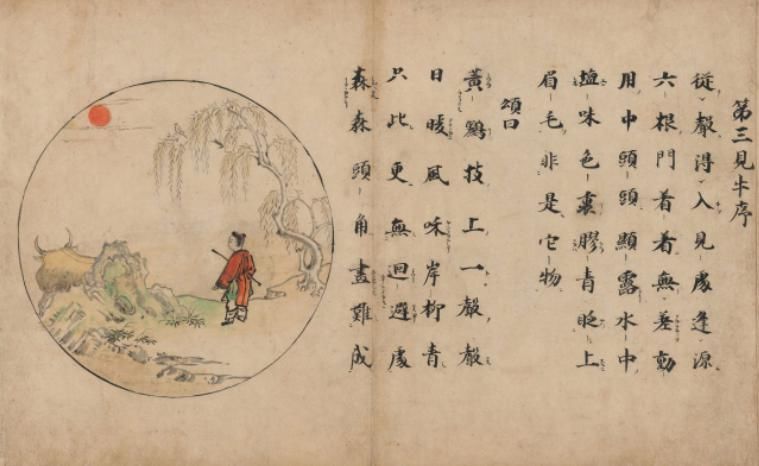 第三見牛序
從聲得入見處逢源
六根門着着無差動
用中頭頭顯露水中
塩味色裏膠青眨上
眉毛非是它物
頌曰
黃鸝技上一聲聲
日暖風咊岸柳青
只此更無迴避處
森森頭角畫難成